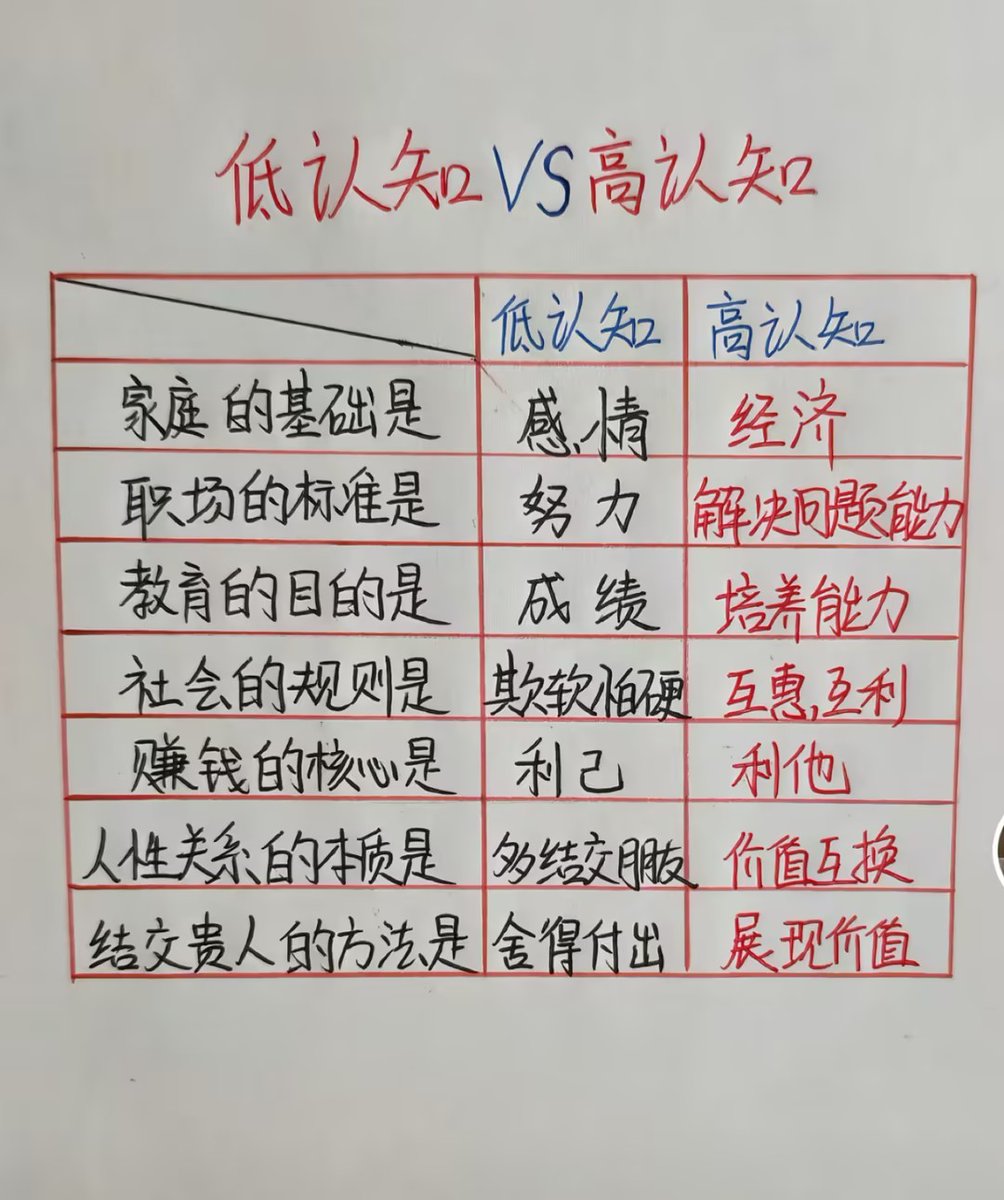 低认知VS高认知
低认知 高认知
家庭的基础是 感情 经济
职场的标准是 努力 解决问题能力
教育的目的是 成绩 培养能力
社会的规则是 欺软怕硬 互惠互利
赚钱的核心是 利己 利他
人性关系的本质是 多结交朋友 价值互换
结交贵人的方法是 舍得付出 展现价值